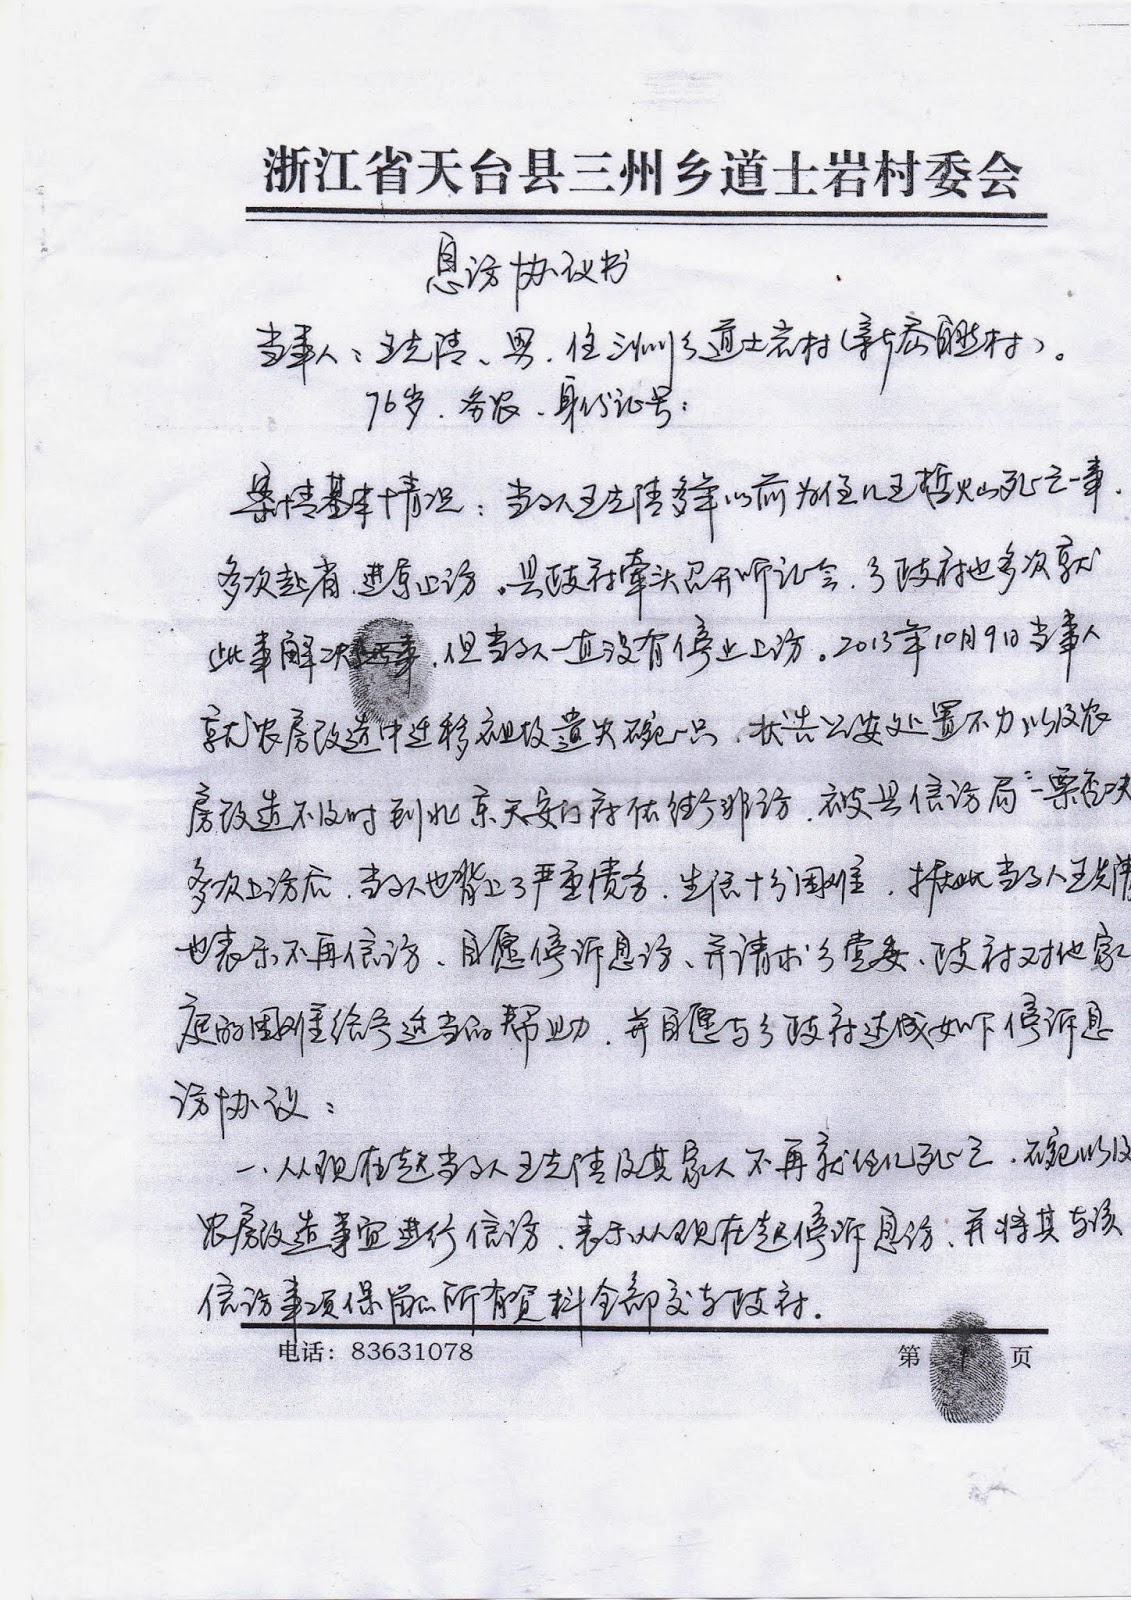 浙江省天台县三州乡道士岩村委会
息访协议书
当事人：王先清、男、住三州乡道士岩村（新岙自然村）。
76岁、务农、身份证号：
案情基本情况：当事人王先清多年以前为侄儿王哲灿死亡一事、
多次赴省、进京上访。县政府牵头召开听证会、乡政府也多次就
此事解决、但当事人一直没有停止上访。2013年10月9日当事人
就农房改造中迁移祖坟遗失碗一只、状告公安处置不力以及农
房改造不及时到北京天安门府右街非访、被县信访局"一票否决
多次上访后、当事人也背上了严重债务、生活十分困难、据此当事人王先清
也表示不再信访、自愿停诉息访、并请求乡党委、政府对他家
庭的困难给予适当的帮助、并自愿与乡政府达成如下停诉息
访协议：
一、从现在起当事人王先清及其家人不再就侄儿死亡、碗以及
农房改造事宜进行信访、表示从现在起停诉息访、并将其与该
信访事项保留的所有资料全部交与政府.
电话：83631078
第1页